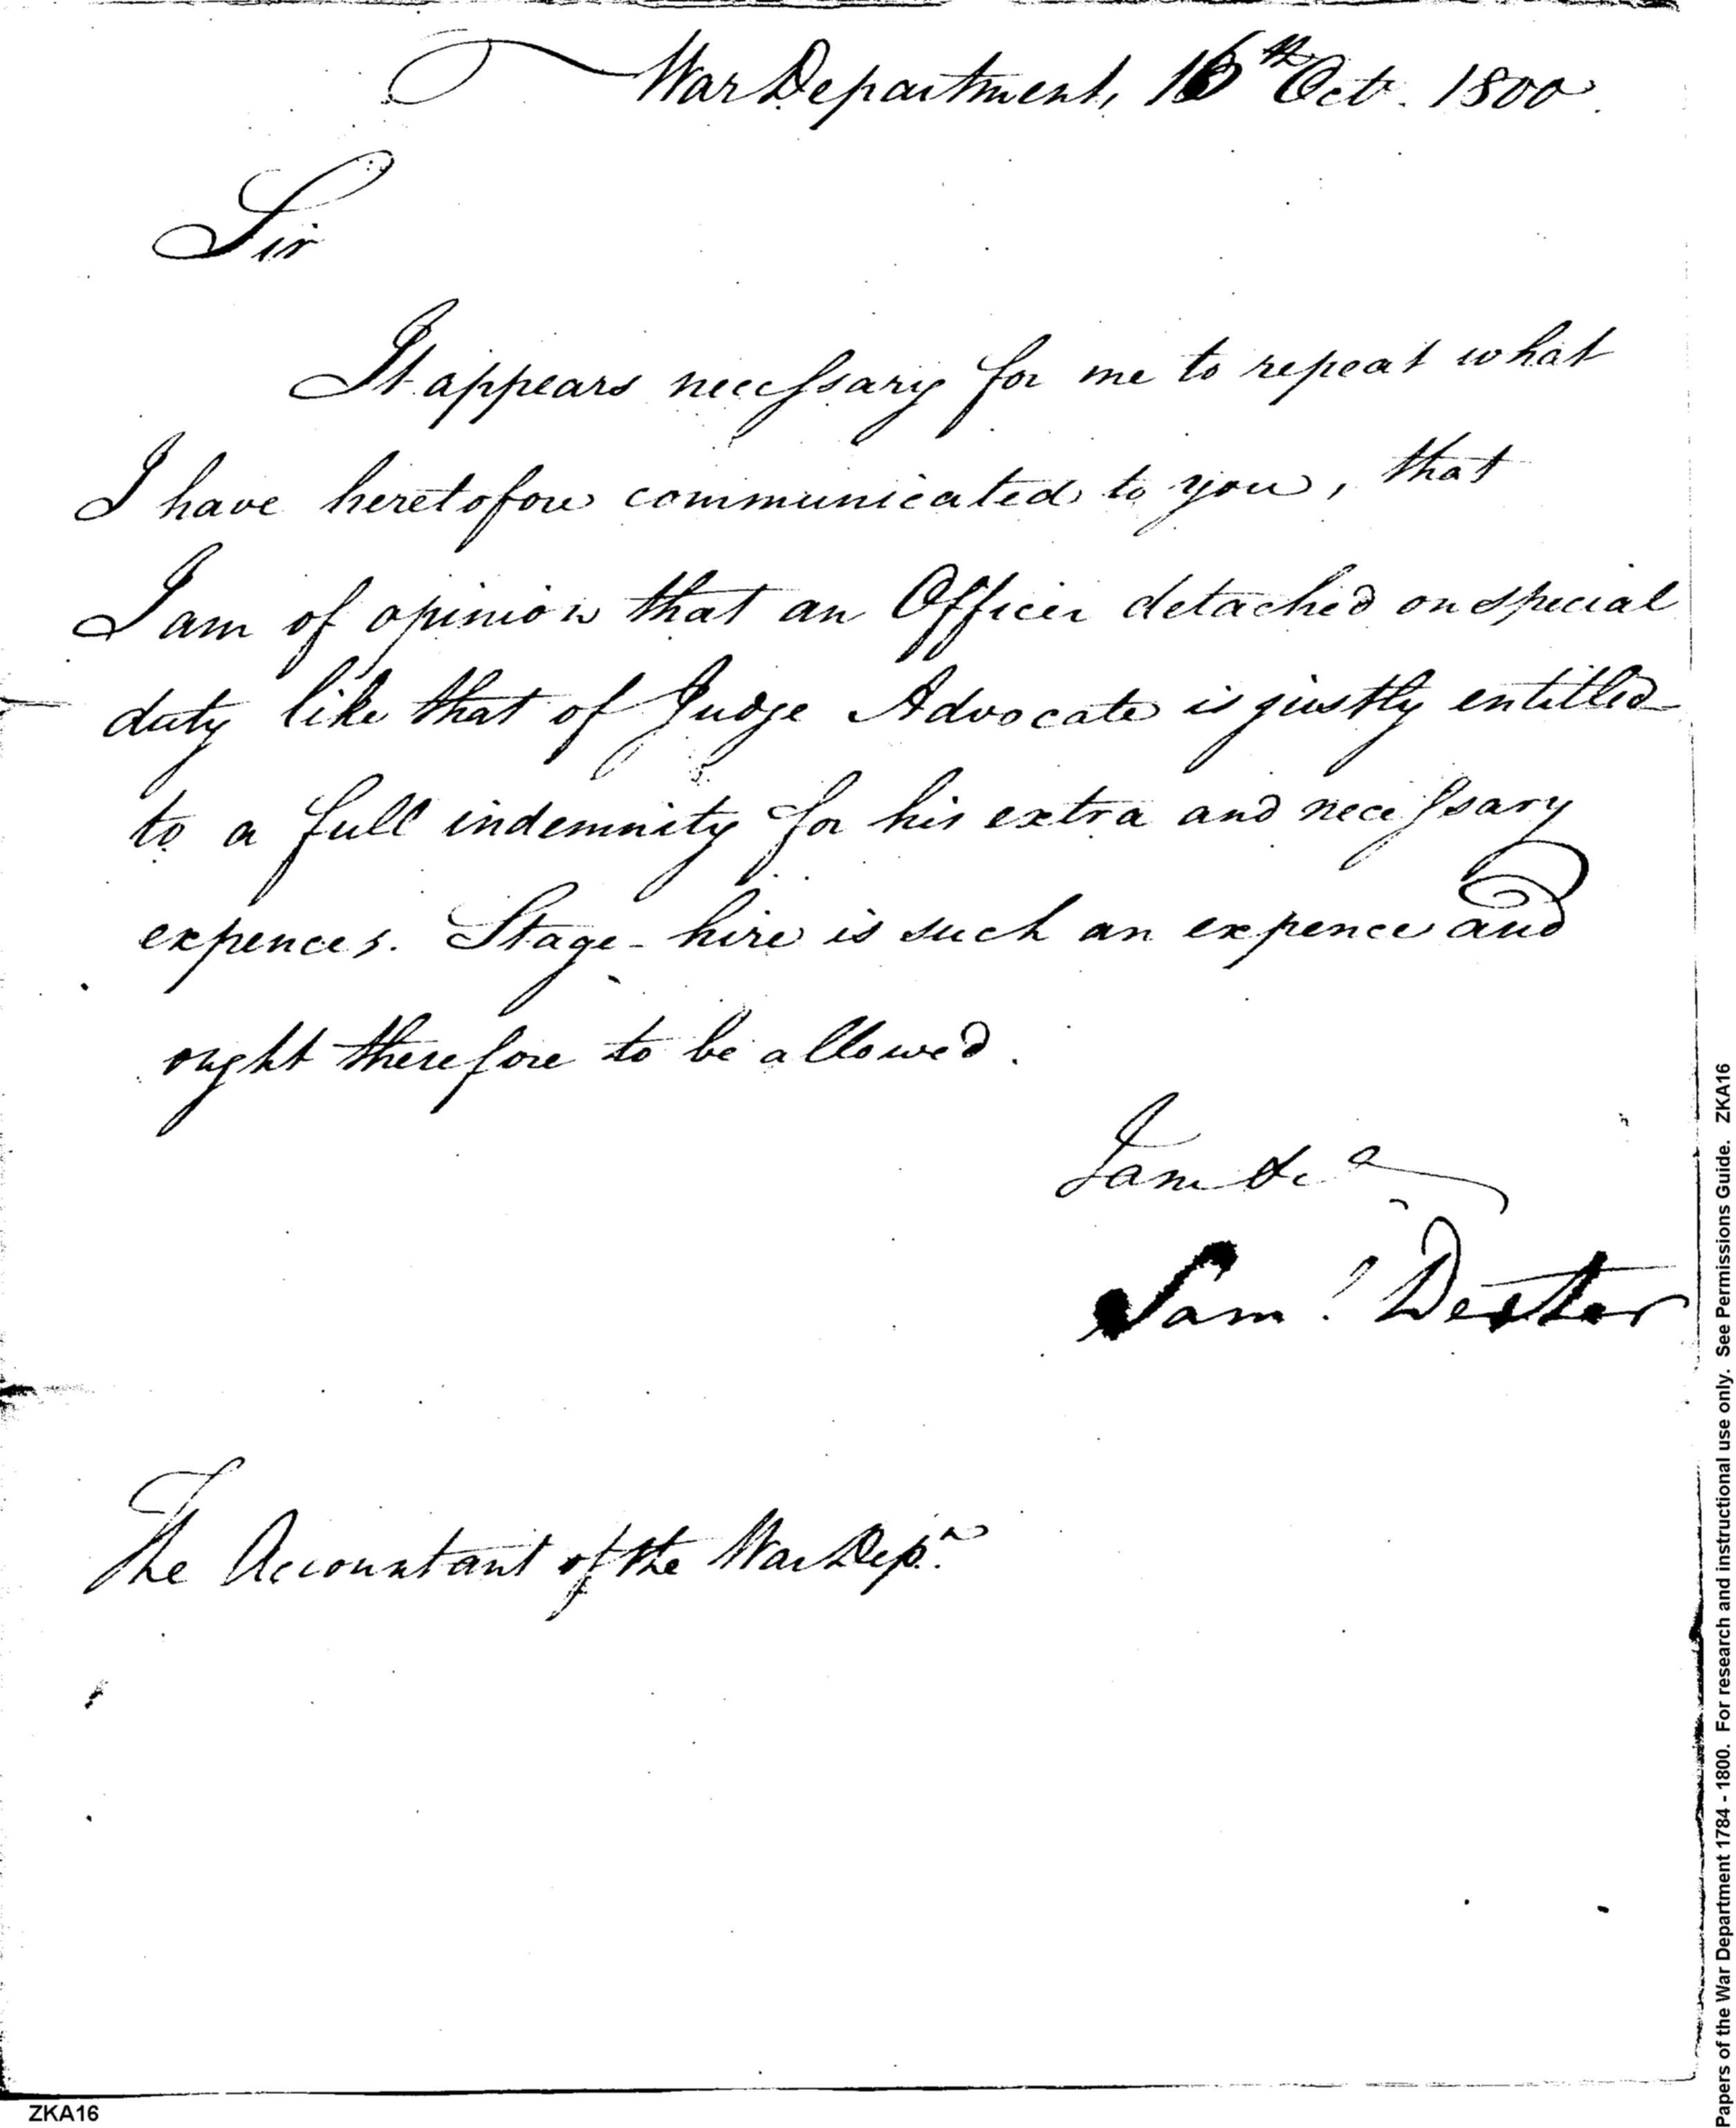 War Department, 16th Oct. 1800.
Sir
It appears necessary for me to repeat what
I have heretofore communicated to you, that
I am of opinion that an Officer detached on special
duty like that of Judge Advocate is justly entitled
to a full indemnity for his extra and necessary
expences. Stage-hire is such an expence and
ought therefore to be allowed.
I am &c a
Saml Dexter
The Accountant of the War Dept.
ZKA16
Papers of the War Department 1784 - 1800. For research and instructional use only. See Permissions Guide. ZKA16